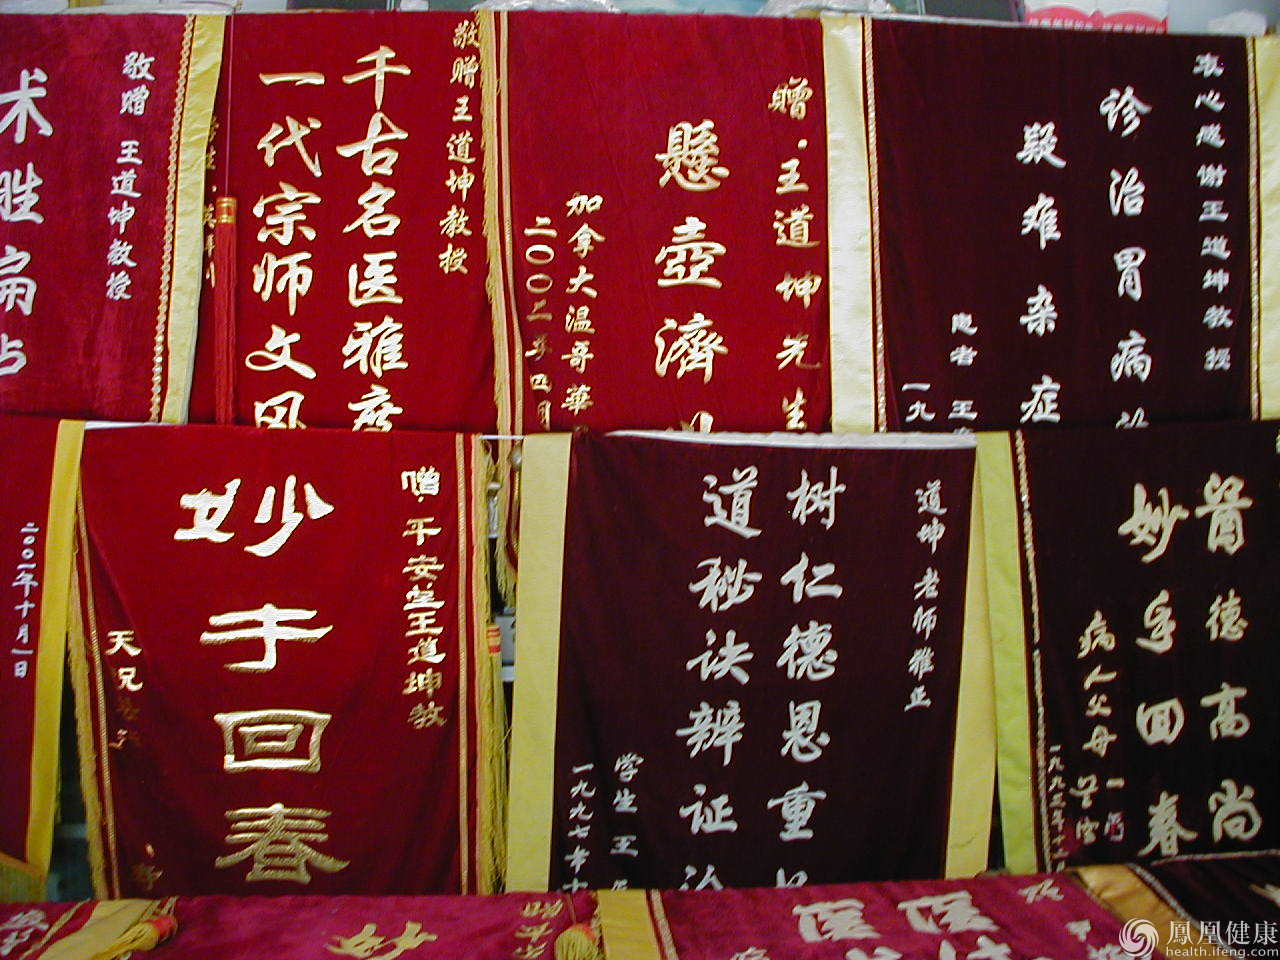 敬赠 王道坤教授
术胜扁
敬赠王道坤教授
千古名医雅
一代宗师文风
赠·王道坤先生
懸壺濟
加拿大温哥華
二〇〇二年四月
衷心感谢王道坤教授
诊治胃病
疑难杂症
患者 王
一九
二〇〇一年十月一日
赠·平安堂王道坤教
妙手回春
天兄
道坤老师雅正
树仁德恩重
道秘诀辨证论
学生 王
一九九七年十
醫德高尚
妙手回春
病人父母
一九九三年十一
妙
医 医
鳳凰健康
health.ifeng.com